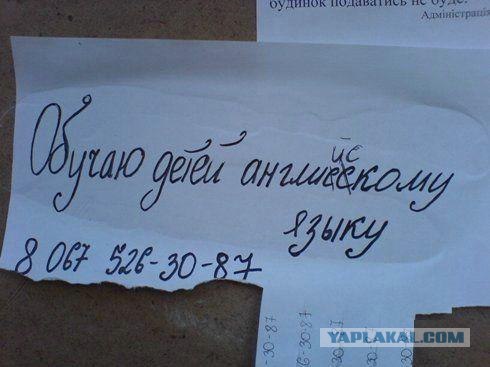 будинок подаватись не буде.
Адміністрація
Обучаю детей английскому
языку
8 067 526-30-87
YAPLAKAL.COM